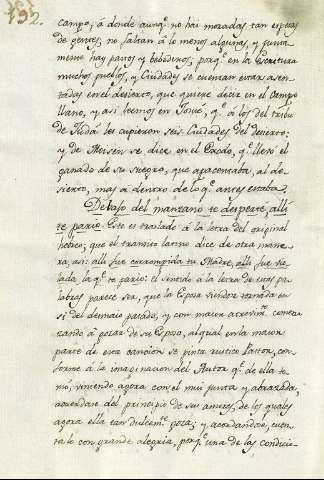 192.
campo; à donde aunq.e no hai moradas tan espesas
de gentes; no faltan à lo menos algunas, y junta-
mente hay pastos y bebederos; porq.e en la Escritura
muchos pueblos, y Ciudades se cuentan estar asen-
tados en el desierto, que quiere decir en el Campo
llano, y así leemos en Josue, q.e à los del tribu
de Judà les cupieron seis Ciudades del desierto;
y de Moisen se dice en el Exodo, q.e llevó el
ganado de su suegro, que apacentaba, al de-
sierto, mas à dentro de lo q.e antes estaba.
Debajo del manzano te desperté, allí
te parió. Este es traslado à la letra del original
hebreo; que el traslado latino dice de otra mane-
ra, así: allí fue corrompida tu Madre, allí fue vio-
lada la q.e te parió: el sentido à la letra de estas pa-
labras parece ser, que la Esposa viendose tornada en
sí del desmaio pasado, y con maior atrevim.to comen-
zando à gozar de su Esposo, al qual en la maior
parte de esta cancion se pinta rustico Pastor, con-
forme à la imaginacion del Autor q.e de ella te-
nia; viniendo agora con el mui junta y abrazada,
acuerdase del principio de sus amores, de los quales
agora ella tan dulcem.te goza; y acordandose, cuen-
talo con grande alegria, porq.e una de las condicio-